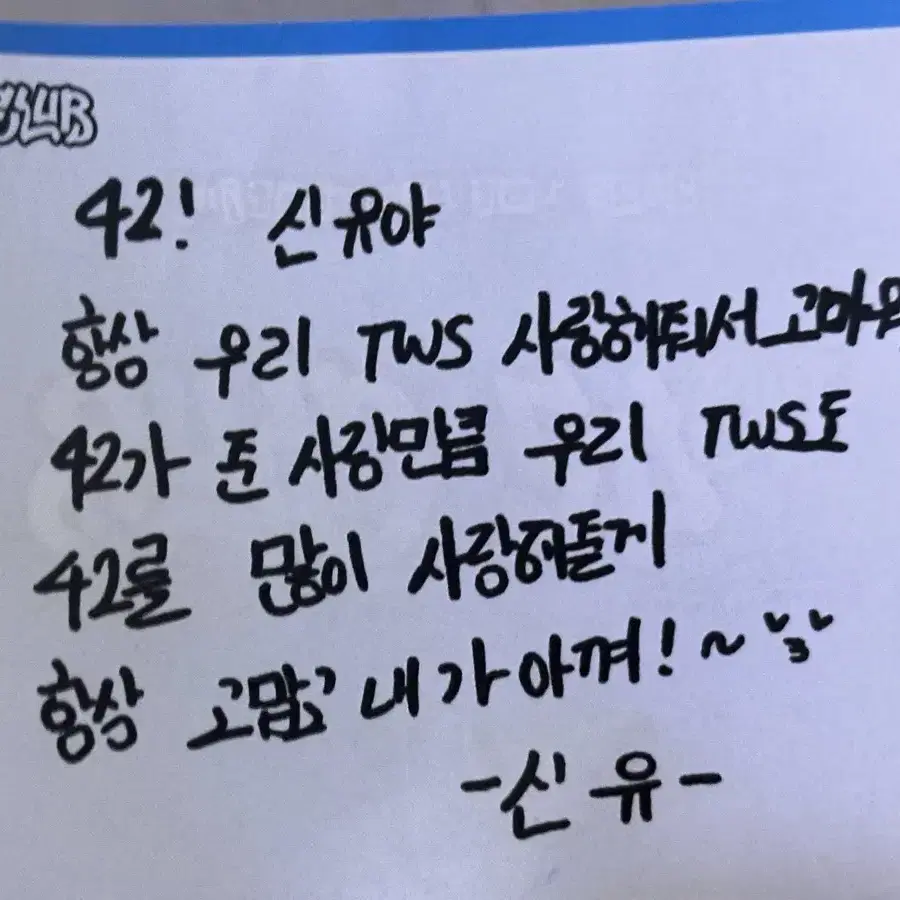 CLUB
42! 신유야
항상 우리 TWS 사랑해줘서 고마워
42가 준 사랑만큼 우리 TWS도
42를 많이 사랑해줄게
항상 고맙고 내가 아껴!~
-신유-